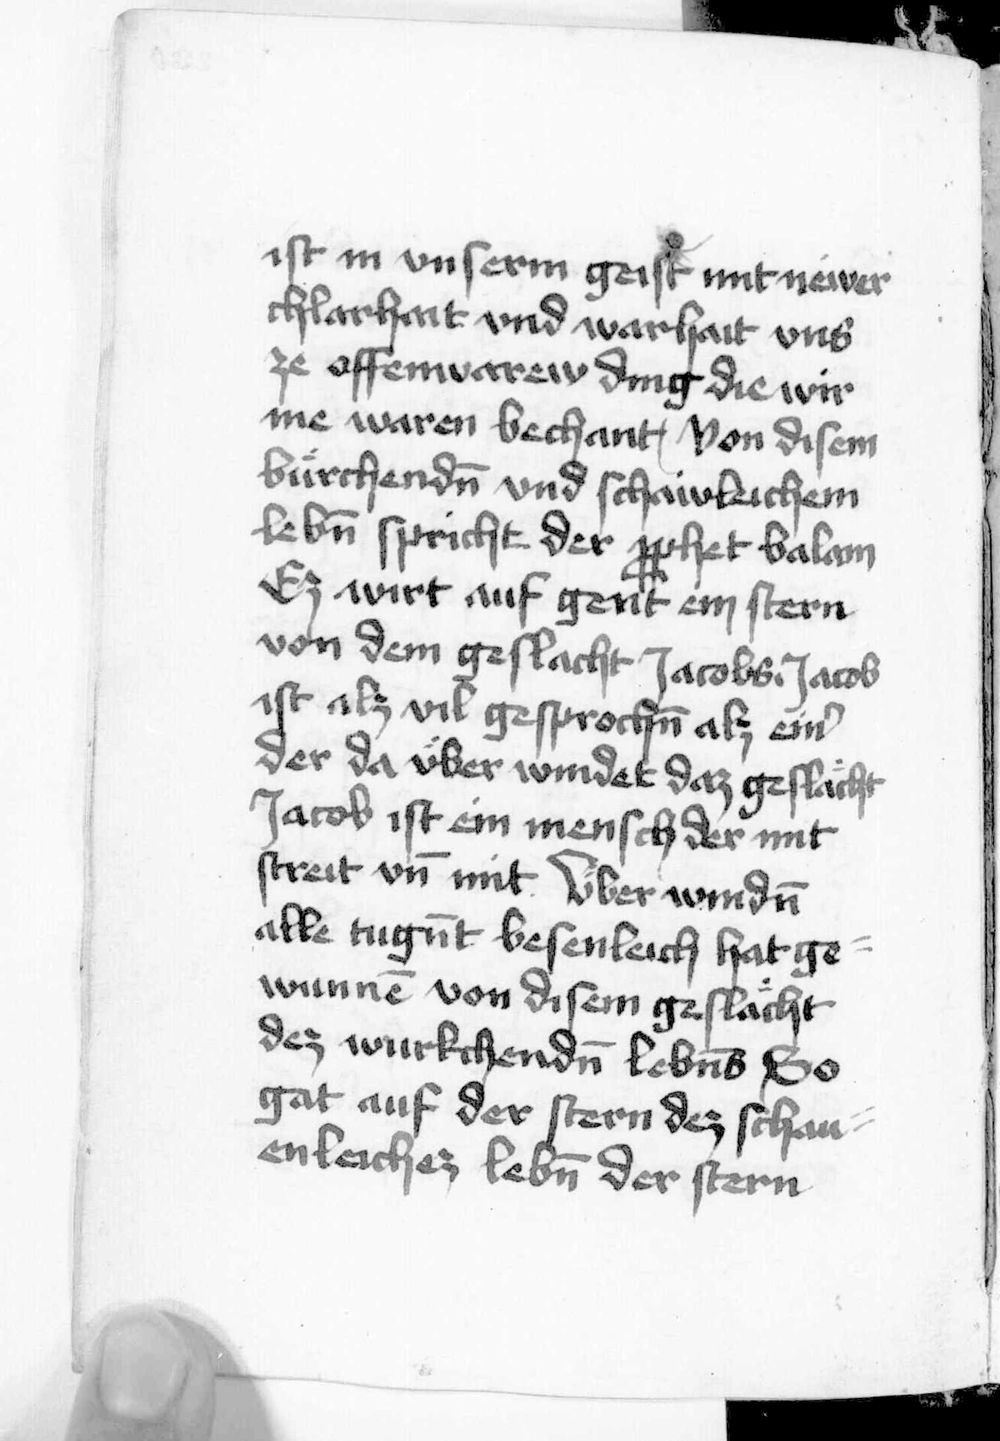 ist in vnserm geist mit neẅer
chlarhait vnd warhait vns
ze offenwarew ding die wir
nie waren bechant Von disem
bürchendn̄ vnd schäwleichem
lebn̄ spricht der ꝓphet balam
Ez wirt auf gent ein stern
von dem geslacht Jacobs. Jacob
ist alz vil gesprochn̄ alz einˀ
der da v̈ber windet daz geslächt
Jacob ist ein mensch der mit
streit vn̄ mit V̈ber windn̄
alle tugn̄t besenleich hat ge⸗
wunnē von disem geslächt
dez wurkchendn̄ lebn̄s So
gat auf der stern dez schau⸗
enleichez lebn̄ der stern